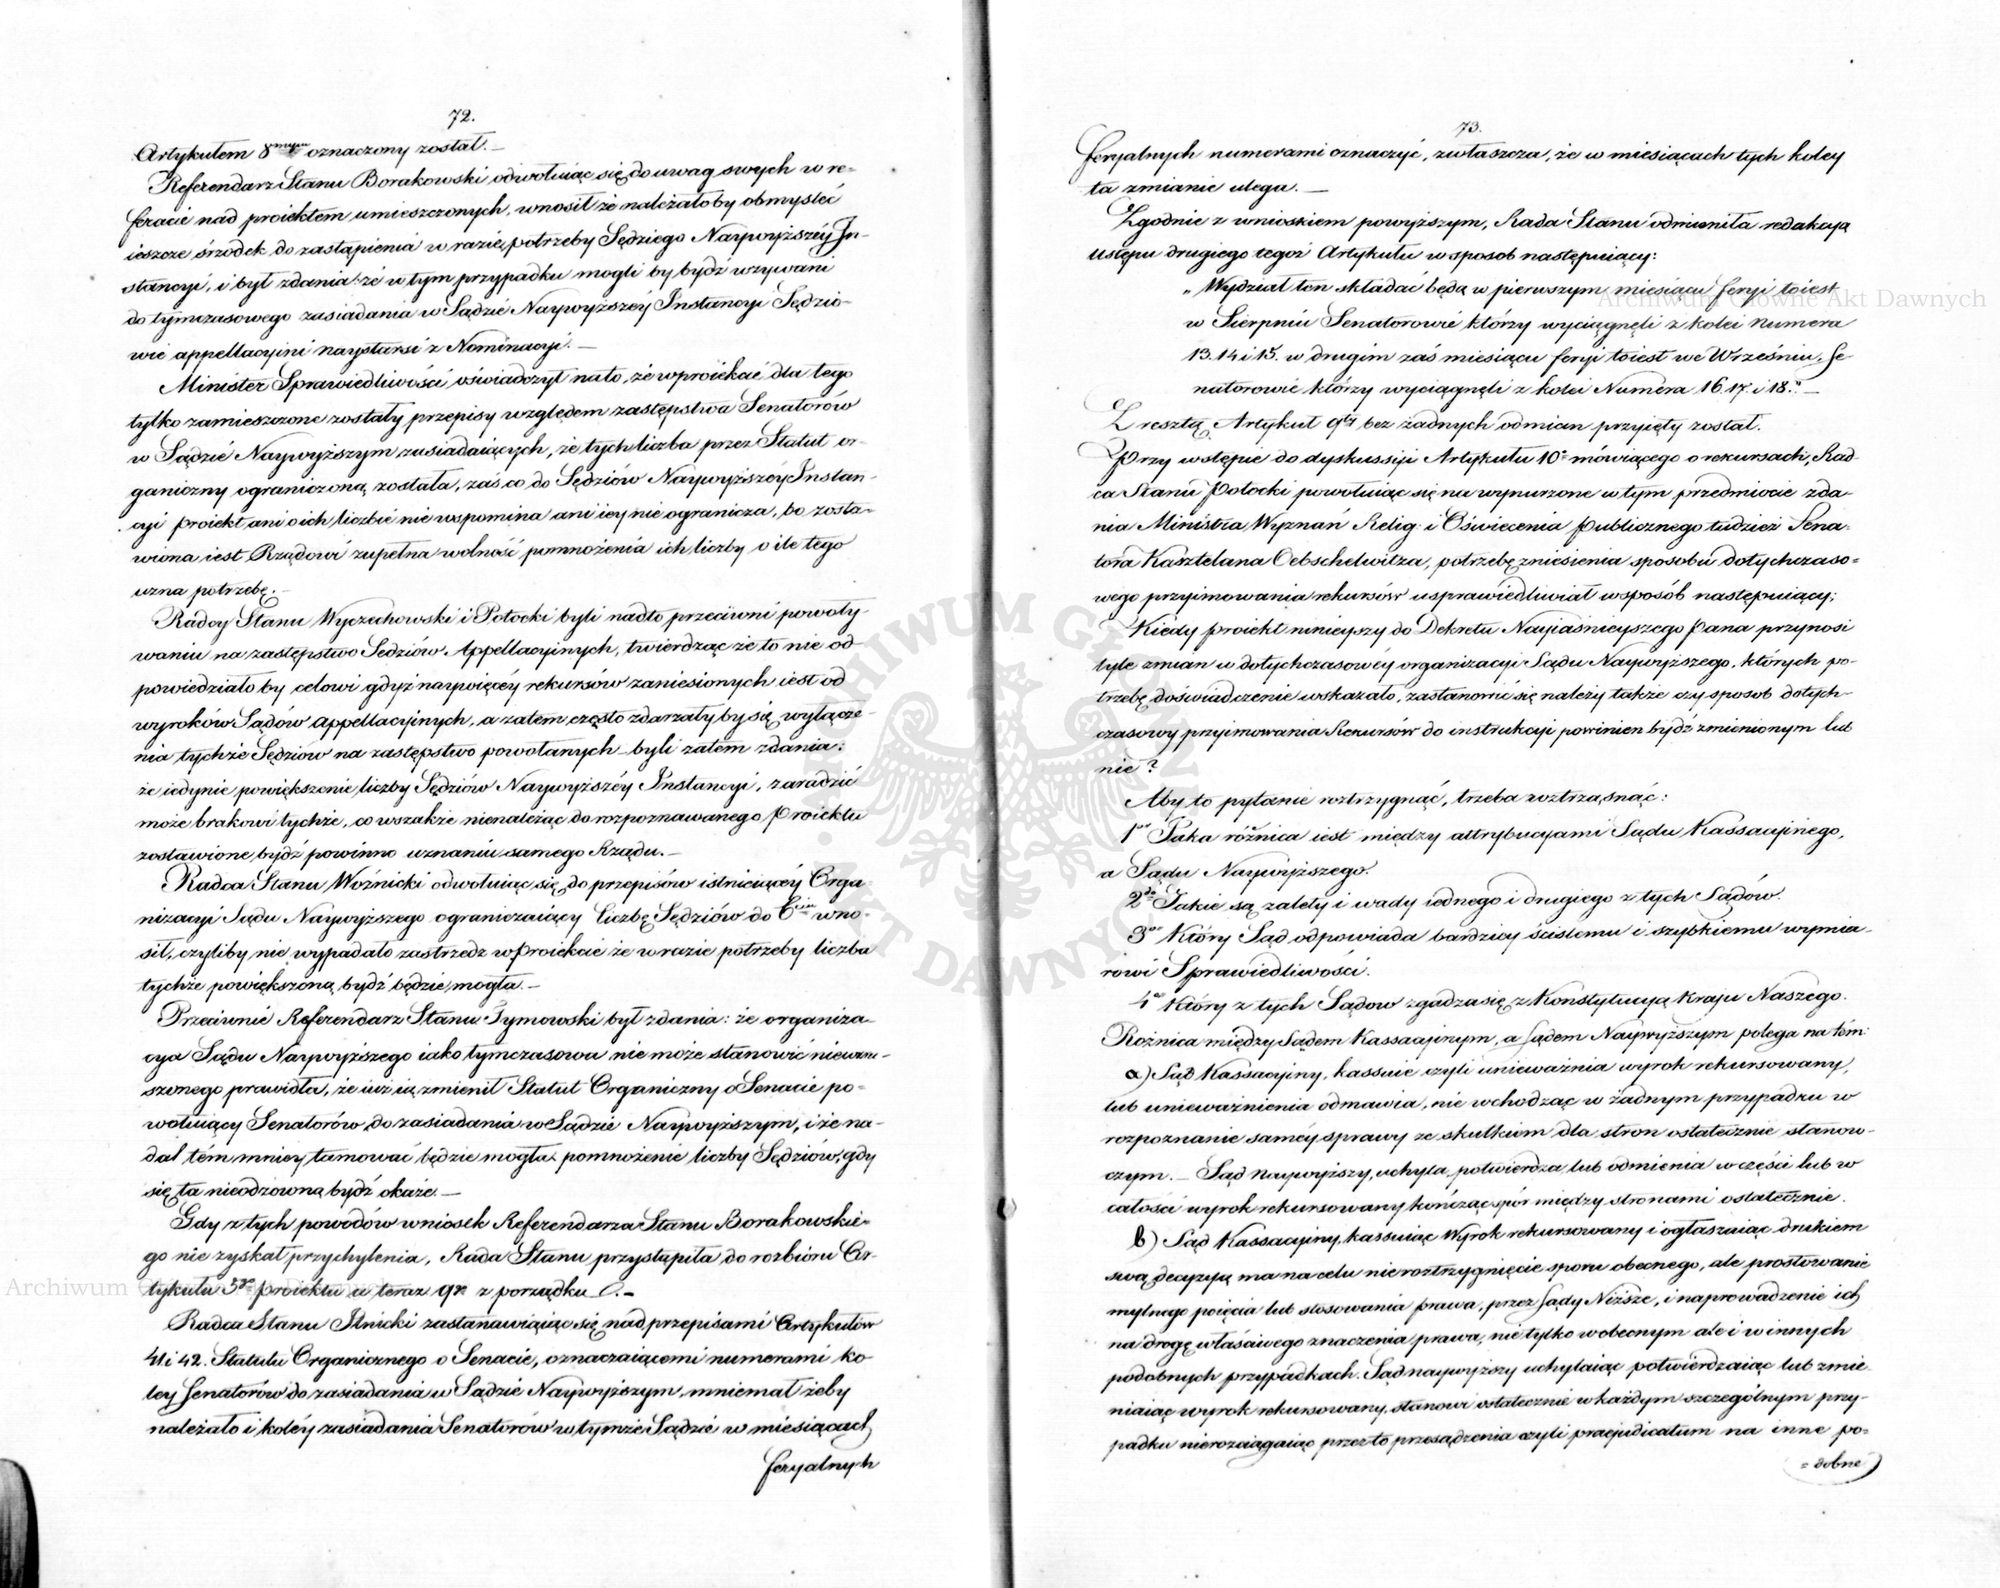 72.
Artykułem 8mym oznaczony został. —
Referendarz Stanu Borakowski odwołuiąc się do uwag swych w re-
feracie nad proiektem umieszczonych, wnosił że należałoby obmyśleć
ieszcze śrzodek do zastąpienia w razie potrzeby Sędziego Naywyższéy In-
stancyi, i był zdania: że w tym przypadku mogli by bydź wzywani
do tymczasowego zasiadania w Sądzie Naywyższéy Instancyi Sędzio-
wie appellacyini naystarsi z Nominacyi. —
Minister Sprawiedliwości oświadczył na to, że w proiekcie dla tego
tylko zamieszczone zostały przepisy względem zastępstwa Senatorów
w Sądzie Naywyższym zasiadaiących, że tych liczba przez Statut or-
ganiczny ograniczoną została, zaś co do Sędziów Naywyższéy Instan-
cyi proiekt ani o ich liczbie nie wspomina ani iey nie ogranicza, bo zosta-
wiona iest Rządowi zupełna wolność pomnożenia ich liczby o ile tego
uzna potrzebę. —
Radcy Stanu Wyczechowski i Potocki byli nadto przeciwni powoły-
waniu na zastępstwo Sędziów Appellacyinych, twierdząc że to nie od-
powiedziało by celowi gdyż naywięcéy rekursów zaniesionych iest od
wyroków Sądów appellacyinych, a zatem często zdarzały by się wyłącze-
nia tychże Sędziów na zastępstwo powołanych byli zatem zdania:
że iedynie powiększenie liczby Sędziów Naywyższéy Instancyi, zaradzić
może brakowi tychże, co wszakże nienależąc do rozpoznawanego Proiektu
zostawione bydź powinno uznaniu samego Rządu. —
Radca Stanu Woźnicki odwołuiąc się do przepisów istnieiącéy Orga-
nizacyi Sądu Naywyższego ograniczaiący liczbę Sędziów do 6ciu wno-
sił, czyliby nie wypadało zastrzedz w Proiekcie że w razie potrzeby liczba
tychże powiększoną bydź będzie mogła. —
Przeciwnie Referendarz Stanu Tymowski był zdania: że organiza-
cya Sądu Naywyższego iako tymczasowa nie może stanowić niewzru-
szonego prawidła, że iuż ią zmienił Statut Organiczny o Senacie po-
wołuiący Senatorów do zasiadania w Sądzie Naywyższym, i że na-
dal tém mniey tamować będzie mogła pomnożenie liczby Sędziów, gdy
się ta nieodzowną bydź okaże. —
Gdy z tych powodów wniosek Referendarza Stanu Borakowskie-
go nie zyskał przychylenia, Rada Stanu przystąpiła do rozbioru Ar-
tykułu 5go proiektu a teraz 9go z porządku. —
Radca Stanu Ilnicki zastanawiaiąc się nad przepisami Artykułów
41 i 42. Statutu Organicznego o Senacie, oznaczaiącemi numerami ko-
ley Senatorów do zasiadania w Sądzie Naywyższym, mniemał żeby
należało i koléy zasiadania Senatorów w tymże Sądzie w miesiącach
feryalnych
73.
feryalnych numerami oznaczyć, zwłaszcza, że w miesiącach tych koley
ta zmianie ulega. —
Zgodnie z wnioskiem powyższym, Rada Stanu odmieniła redakcyą
ustępu drugiego tegoż Artykułu w sposob następuiący:
„Wydział ten składać będą w pierwszym miesiącu feryi toiest
w Sierpniu Senatorowie którzy wyciągnęli z kolei Numera
13. 14 i 15. w drugim zaś miesiącu feryi toiest we Wrześniu, Se-
natorowie którzy wyciągnęli z kolei Numera 16. 17. i 18." —
Z resztą Artykuł 9ty bez żadnych odmian przyięty został.
Przy wstępie do dyskussyi Artykułu 10o mówiącego o rekursach, Rad-
ca Stanu Potocki powołuiąc się na wynurzone w tym przedmiocie zda-
nia Ministra Wyznań Relig: i Oświecenia Publicznego tudzież Sena-
tora Kasztelana Oebschelwitza, potrzebę zniesienia sposobu dotychczaso-
wego przyimowania rekursów usprawiedliwiał w sposób następuiący:
Kiedy proiekt ninieyszy do Dekretu Nayiaśnieyszego Pana przynosi
tyle zmian w dotychczasowéy organizacyi Sądu Naywyższego, których po-
trzebę doświadczenie wskazało, zastanowić się należy także czy sposob dotych-
czasowy przyimowania Rekursów do instrukcyi powinien bydź zmienionym lub
nie?
Aby to pytanie roztrzygnąć, trzeba roztrząsnąć:
1mo Jaka różnica iest między attrybucyami Sądu Kassacyinego,
a Sądu Naywyższego.
2do Jakie są zalety i wady iednego i drugiego z tych Sądów.
3tio Który Sąd odpowiada bardziey ścisłemu i szybkiemu wymia-
rowi Sprawiedliwości.
4to Który z tych Sądow zgadza się z Konstytucyą Kraju Naszego.
Rożnica między Sądem Kassacyinym, a Sądem Naywyższym polega na tém:
a) Sąd Kassacyiny, kassuie czyli unieważnia wyrok rekursowany,
lub unieważnienia odmawia, nie wchodząc w żadnym przypadku w
rozpoznanie saméy sprawy ze skutkiem dla stron ostatecznie stanow-
czym. — Sąd Naywyższy, uchyla, potwierdza lub odmienia w części lub w
całości wyrok rekursowany kończąc spór między stronami ostatecznie.
b) Sąd Kassacyiny, kassuiąc Wyrok rekursowany i ogłaszaiąc drukiem
swą decyzyą ma na celu nie roztrzygnięcie sporu obecnego, ale prostowanie
mylnego poięcia lub stosowania prawa, przez Sądy Niższe, i naprowadzenie ich
na drogę właściwego znaczenia prawa, nie tylko w obecnym ale i w innych
podobnych przypadkach. Sąd naywyższy uchylaiąc potwierdzaiąc lub zmie-
niaiąc wyrok rekursowany, stanowi ostatecznie w każdym szczególnym przy-
padku nierozciągaiąc przez to przesądzenia czyli praejudicatum na inne po-
= dobne
Archiwum Główne Akt Dawnych
ARCHIWUM GŁÓWNE AKT DAWNYCH